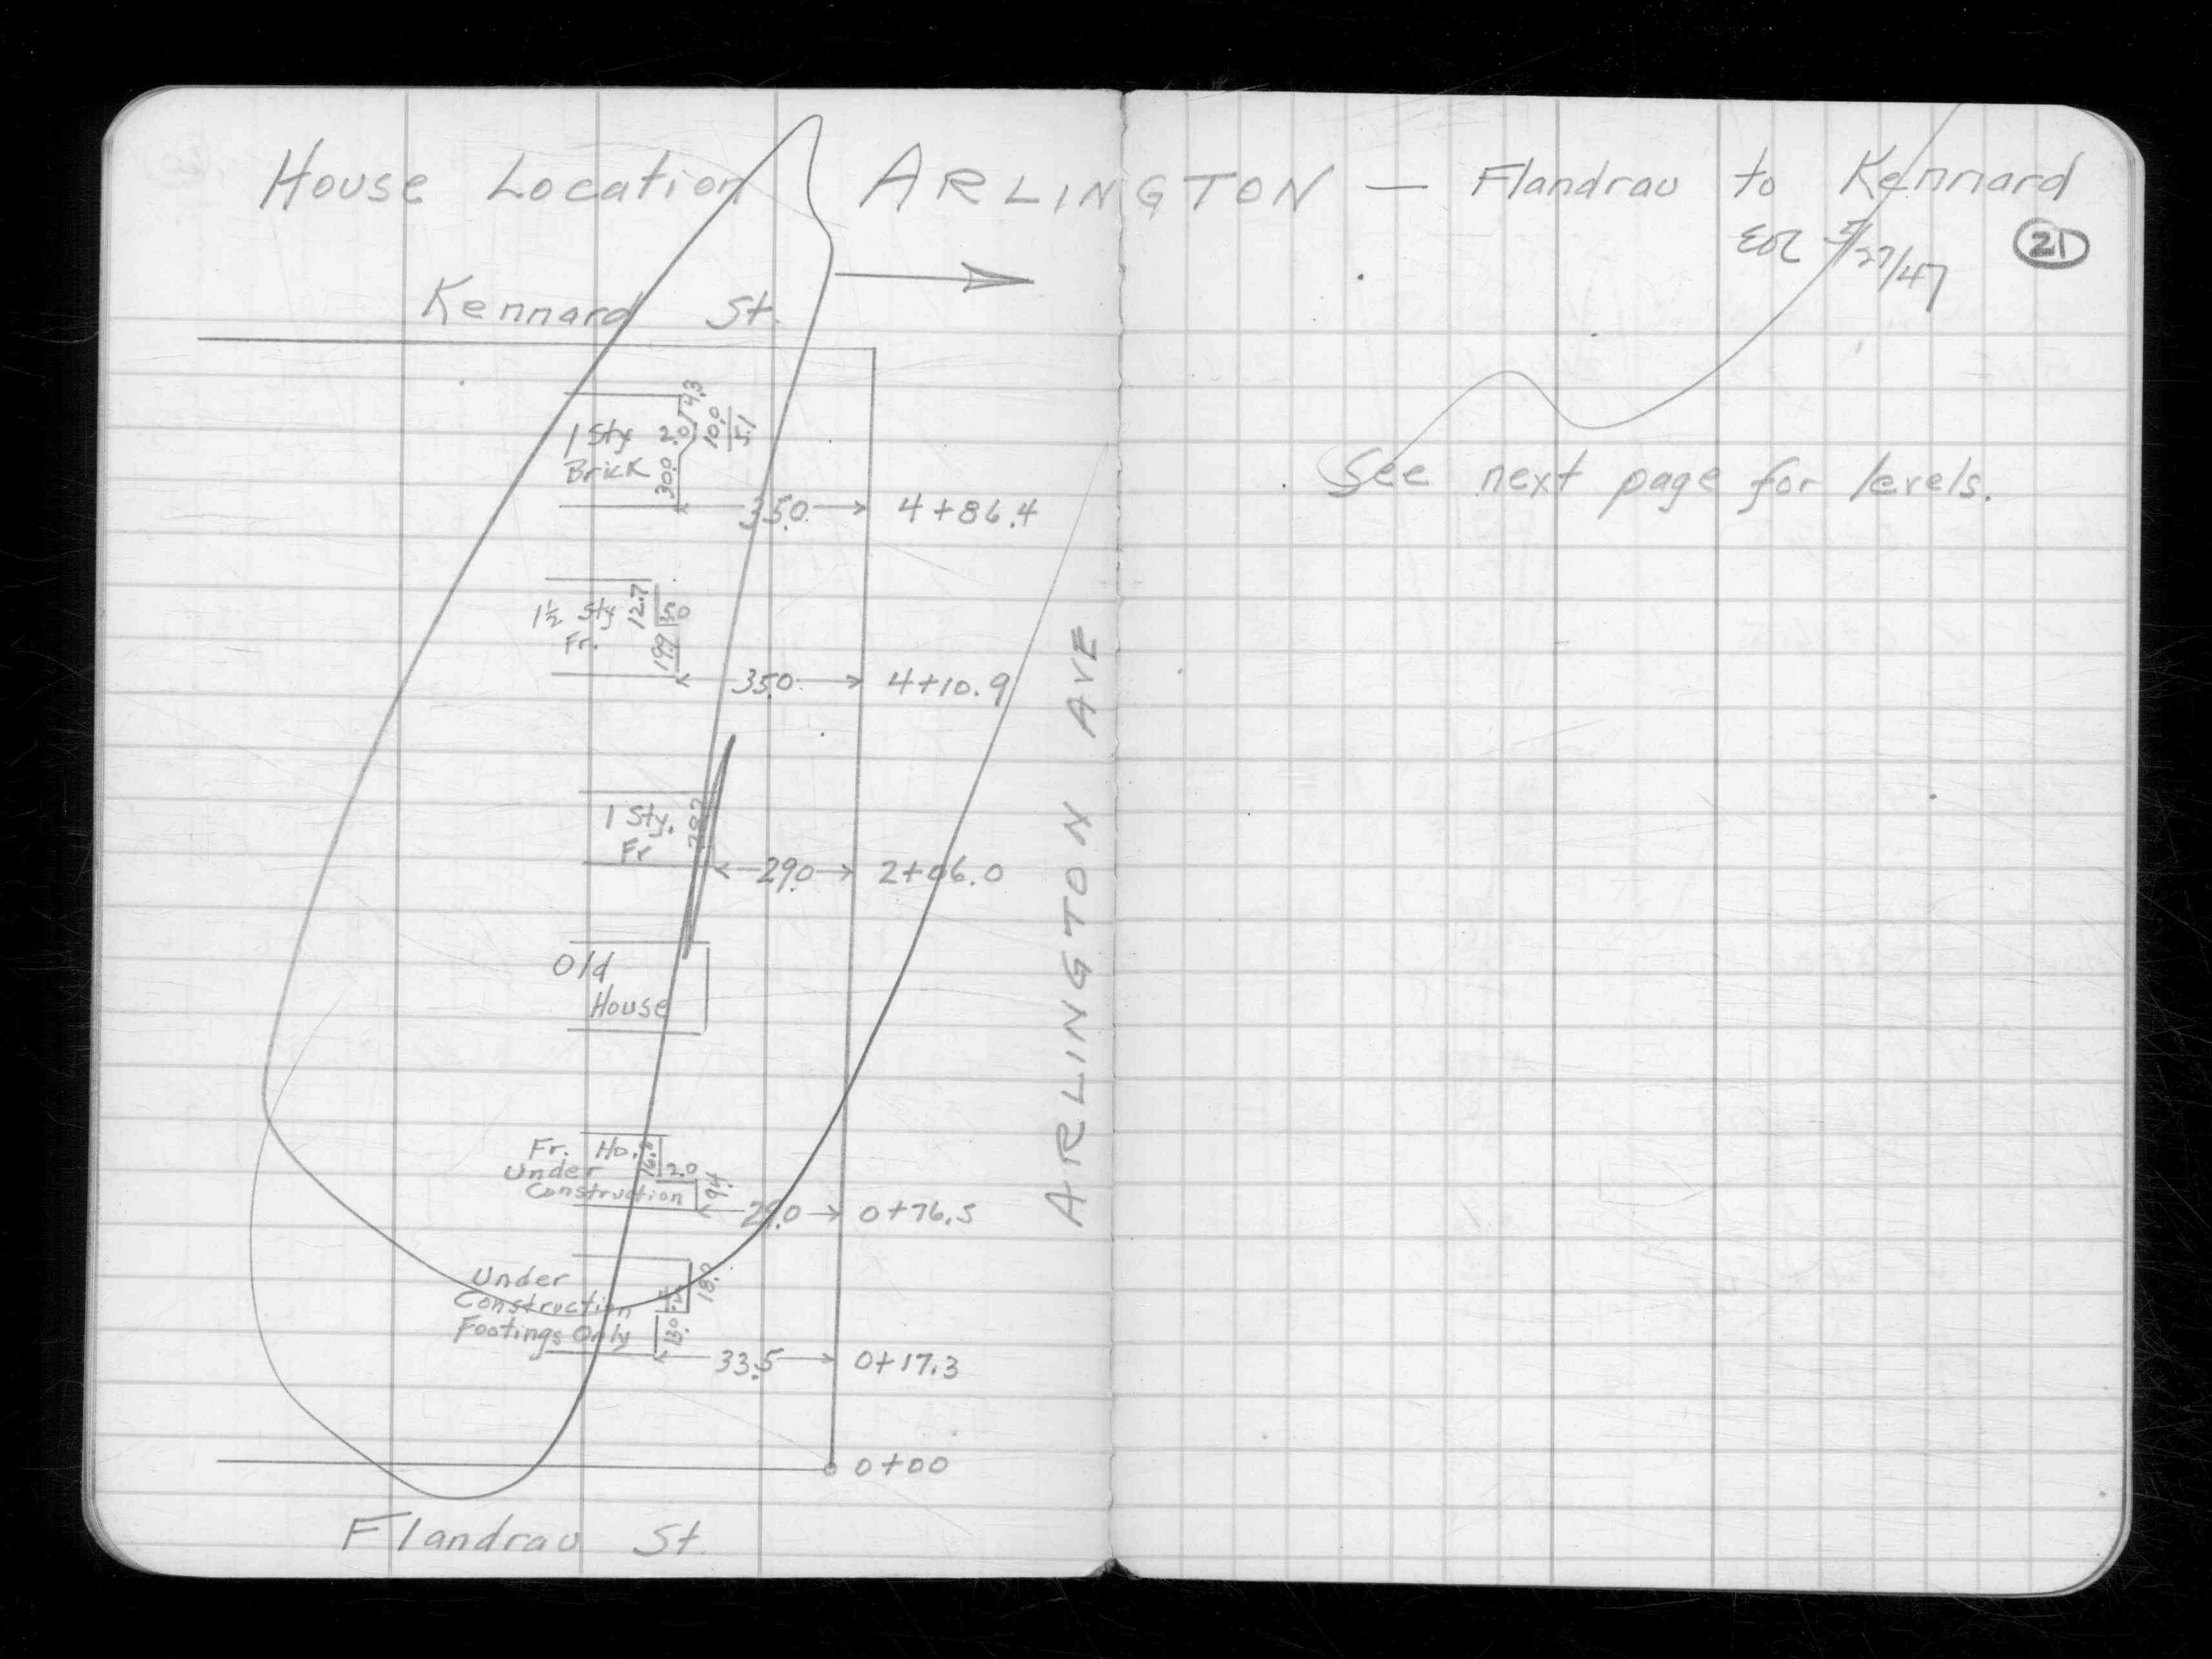 House Location ARLINGTON — Flandrau to Kennard
5/27/47
21
Kennard St.
1 Sty
Brick
4.3
2.0
10.0
5.1
30.0
35.0
4+86.4
See next page for levels.
1½ Sty
Fr.
12.7
19.9
35.0
4+10.9
1 Sty.
Fr
29.0
2+06.0
Old
House
ARLINGTON AVE
Fr. Ho.
Under
Construction
2.0
9.4
29.0
0+76.5
Under
Construction
Footings Only
18.0
13.0
33.5
0+17.3
0+00
Flandrau St.